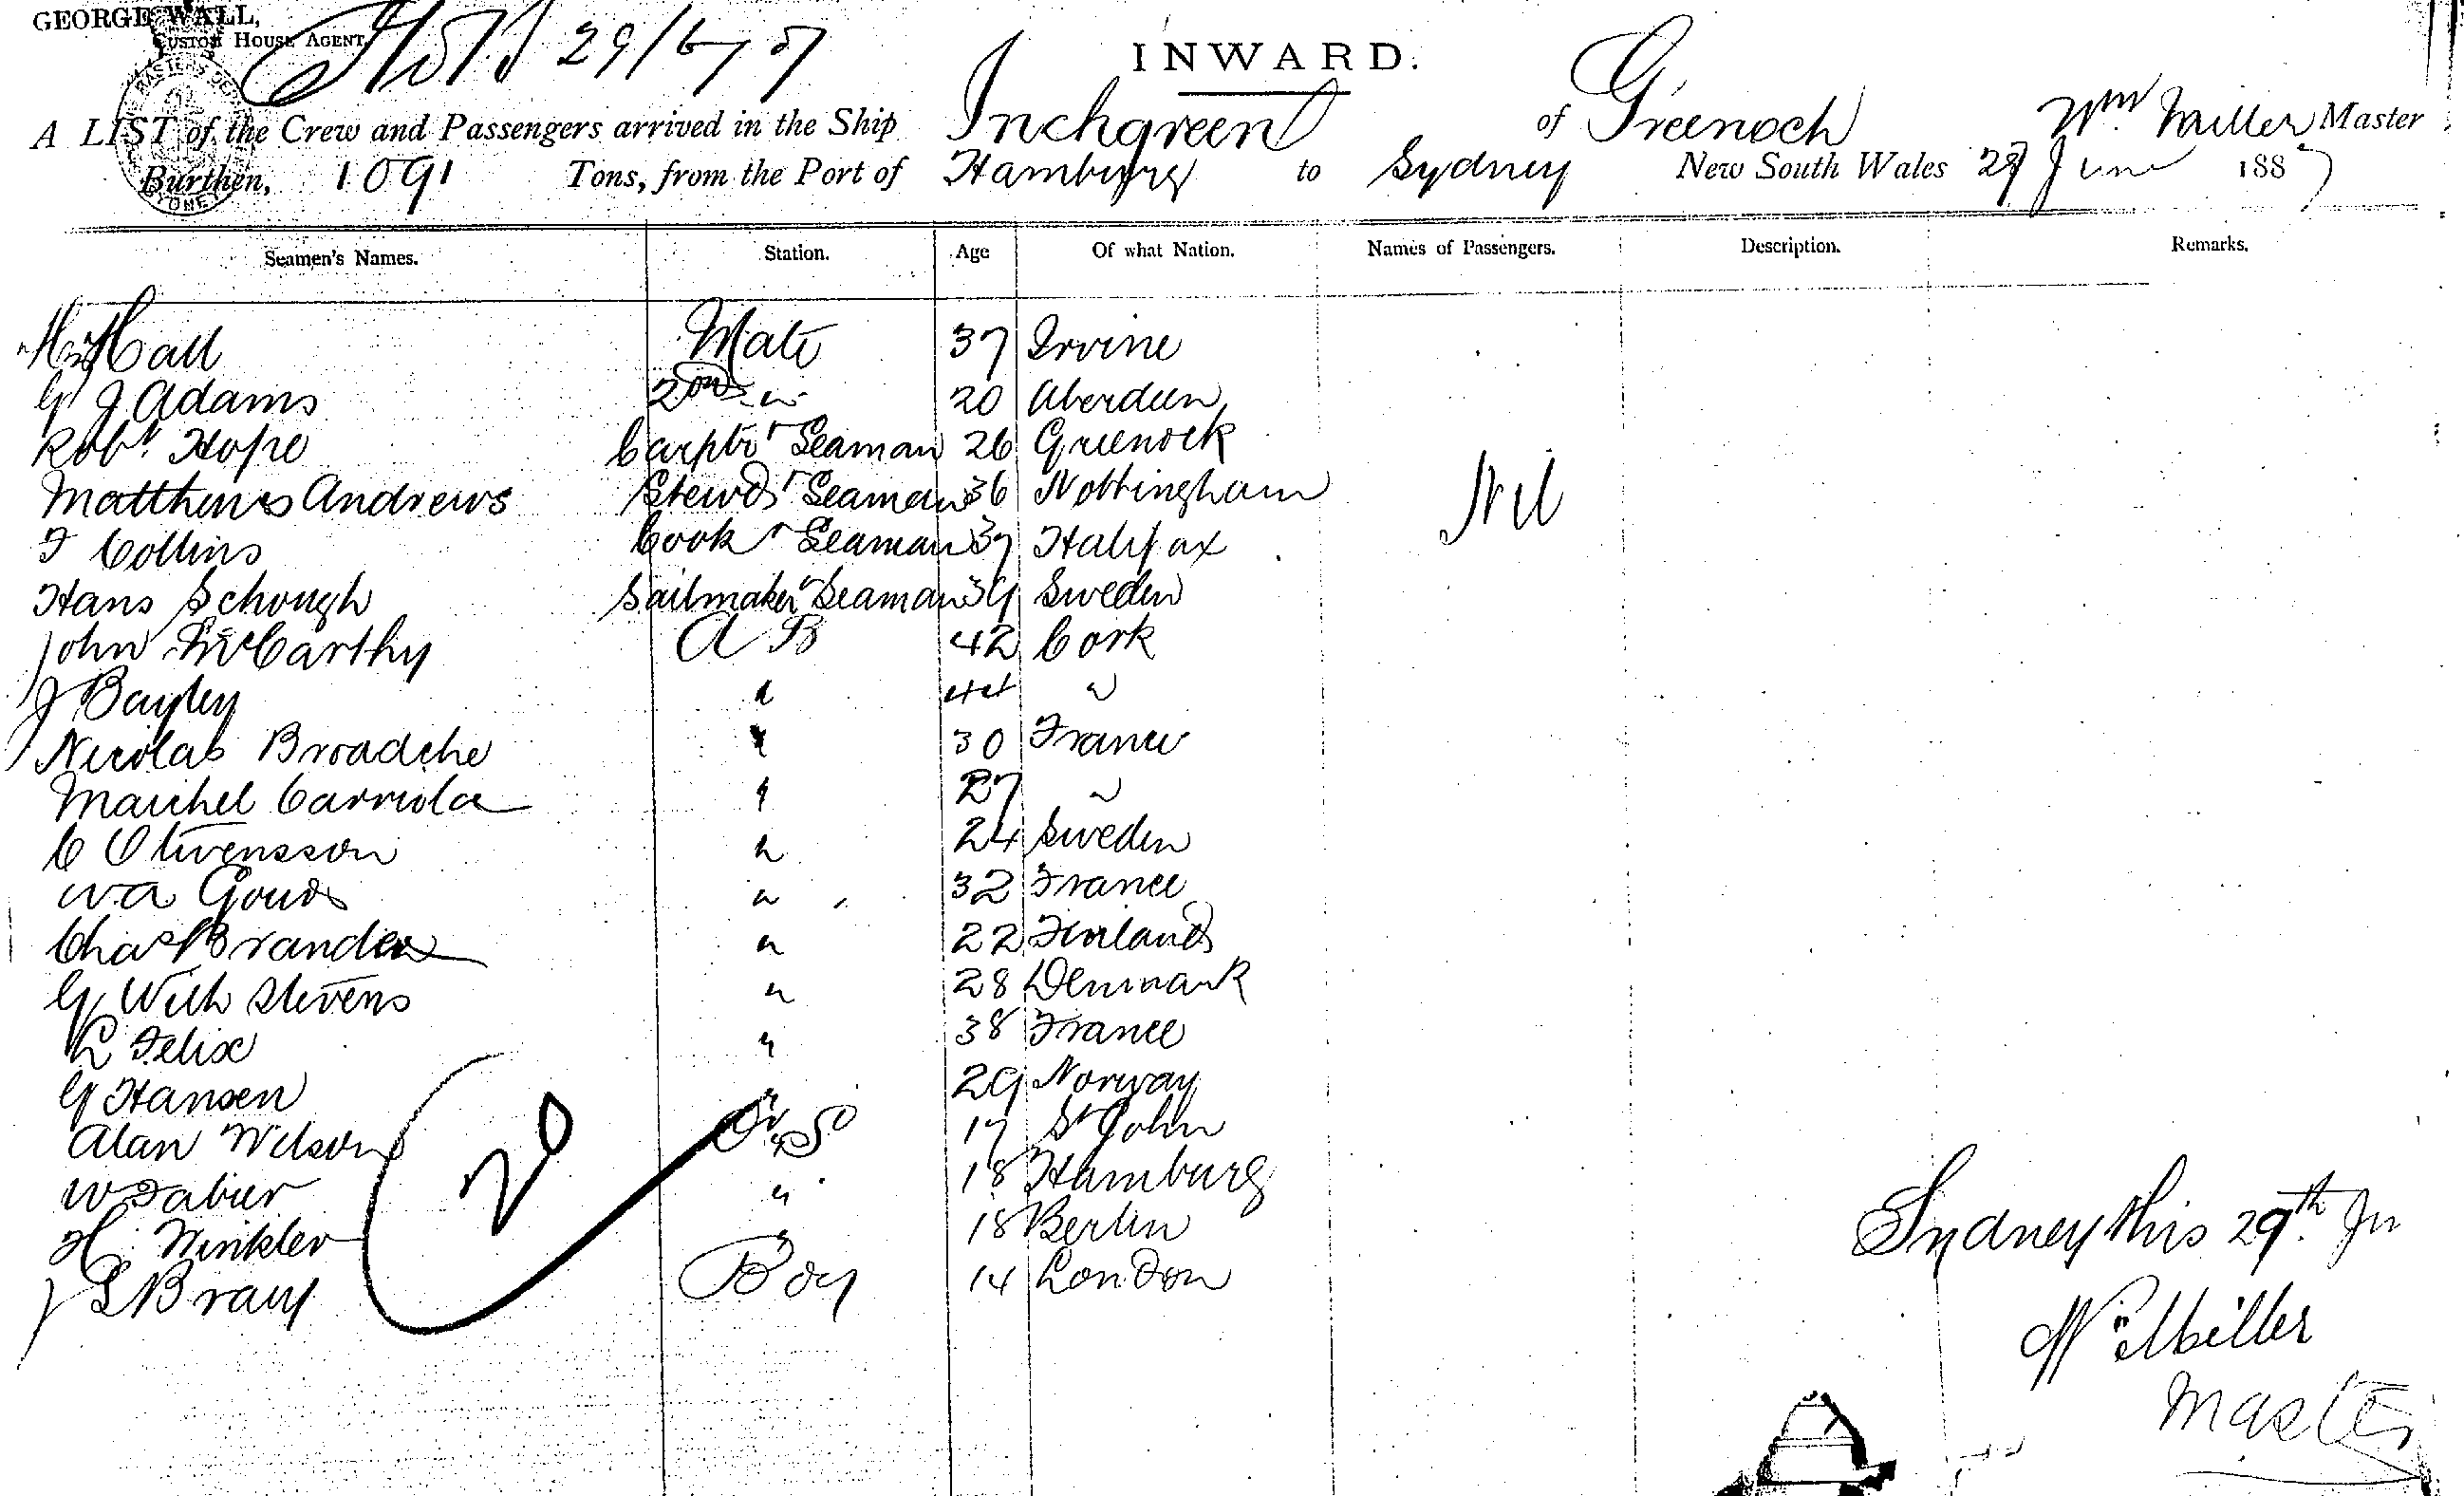 GEORGE WALL,
CUSTOM HOUSE AGENT,
29/6/87
INWARD.
A LIST of the Crew and Passengers arrived in the Ship Inchgreen of Greenock Wm. Miller Master
Burthen, 1091 Tons, from the Port of Hamburg to Sydney New South Wales 29 June 1887
Seamen's Names. Station. Age Of what Nation. Names of Passengers. Description. Remarks.
Hy Hall Mate 37 Irvine
G J Adams 2nd " 20 Aberdeen
Robt. Hope Carptr & Seaman 26 Greenock
Matthews Andrews Stewd & Seaman 36 Nottingham Nil
F Collins Cook & Seaman 37 Halifax
Hans Schough Sailmaker & Seaman 39 Sweden
John McCarthy A B 42 Cork
J Bayley " 44 "
Nicolas Broadche " 30 France
Maichel Carriola " 27 "
C Olivensson " 24 Sweden
W A Gouds " 32 France
Chas Brander " 22 Finland
G Wilh Stevens " 28 Denmark
L Felix " 38 France
G Hansen " 29 Norway
Alan Wilson O.S. 17 St John
W Faber " 18 Hamburg
H. Winkler " 18 Berlin
J L Bray Boy 14 London
Sydney this 29th Ju
Wm Miller
Master